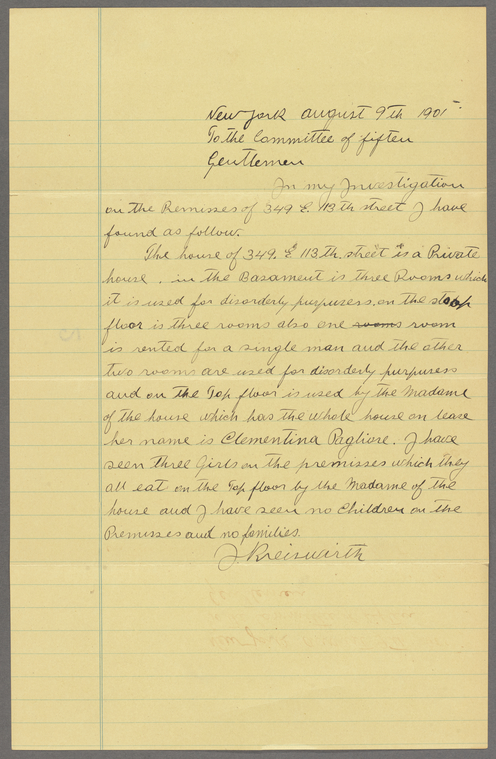 New York august 9th 1901
To the Committee of fifteen
Gentlemen
In my Investigation
on the Remisses of 349 E. 113th street I have
found as follow.
The house of 349. E 113th. street is a Private
house. in the Basament is three Rooms which
it is used for disorderly purpusess. on the stoop
floor is three rooms also one rooms room
is rented for a single man and the other
two rooms are used for disorderly purpusess
and on the Top floor is used by the Madame
of the house which has the whole house on lease
her name is Clementina Pagliore. I have
seen three Girls on the premisses which they
all eat on the Top floor by the Madame of the
house and I have seen no Children on the
Premisses and no families.
J Kreiswirth